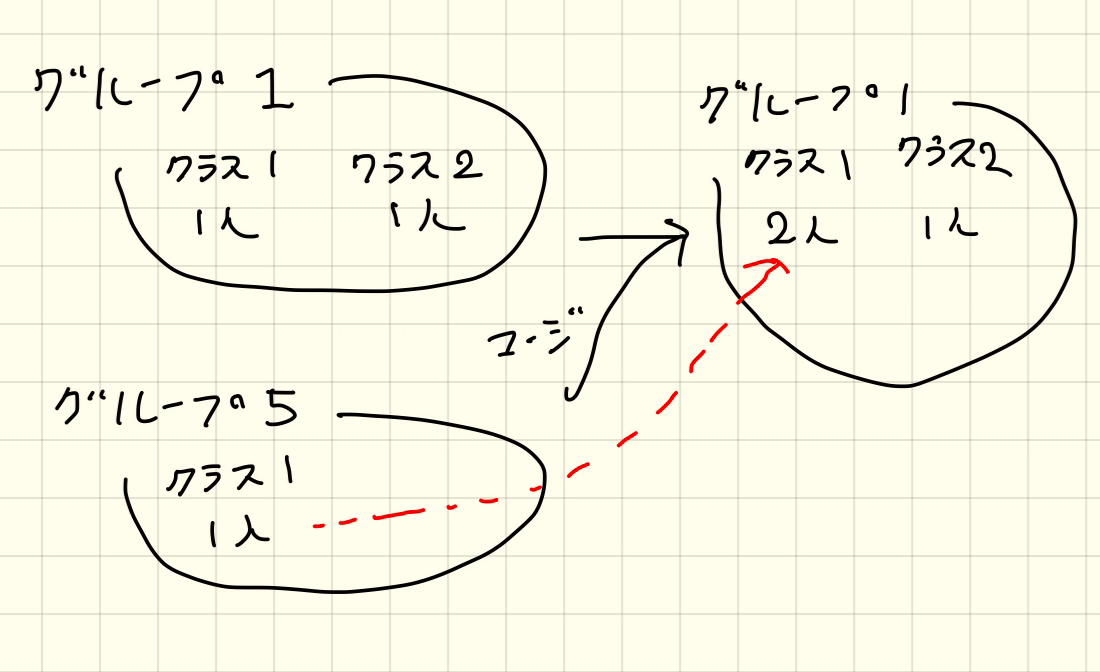 グループ 1
クラス1 クラス2
1人 1人
グループ 1
クラス1 クラス2
2人 1人
マージ
グループ 5
クラス1
1人